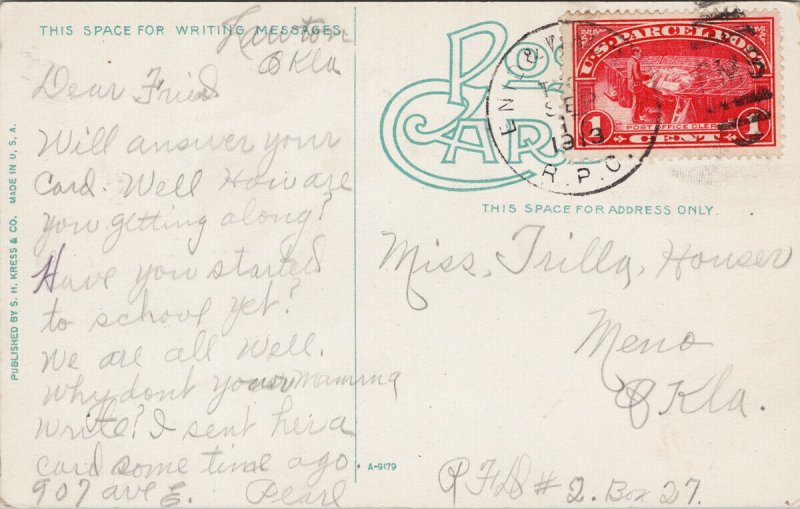 THIS SPACE FOR WRITING MESSAGES
Lawton
Okla
Dear Fried
Will answer your
Card. Well How are
you getting along?
Have you started
to school yet?
We are all Well.
Why dont your mamma
write? I sent her a
card some time ago.
907 ave E. Pearl
PUBLISHED BY S. H. KRESS & CO. MADE IN U. S. A.
A-9179
POST
CARD
ENID &
SEP
1913
R.P.O.
U.S. PARCEL POST
POST OFFICE CLERK
1 CENT 1
THIS SPACE FOR ADDRESS ONLY.
Miss, Trilla, Houser
Meno
Okla.
RFD # 2. Box 27.